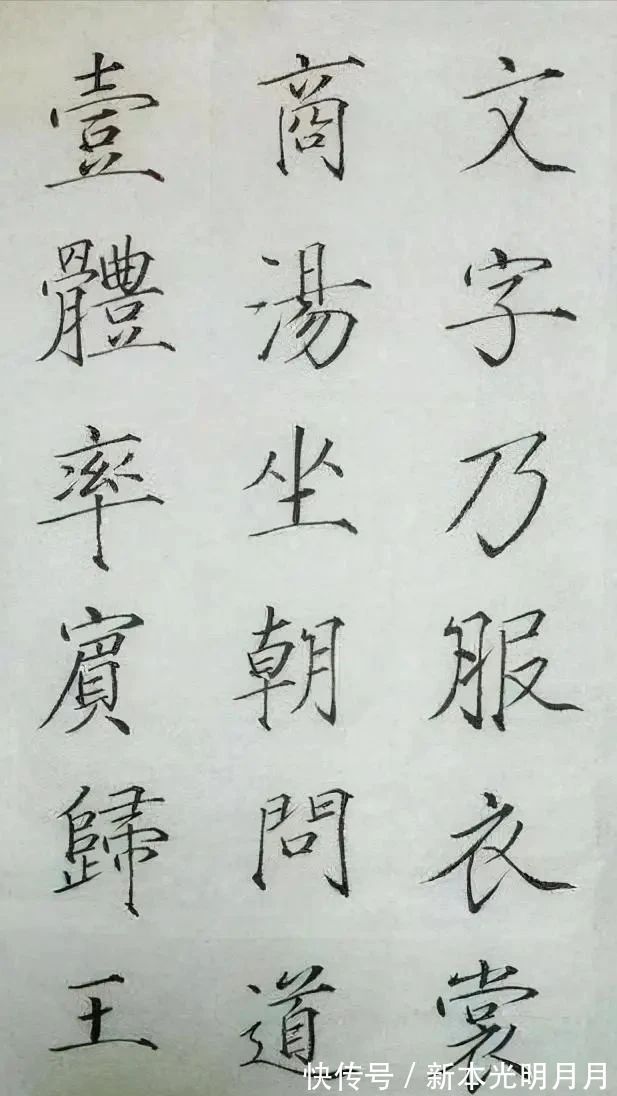 文字乃服衣裳
商湯坐朝問道
壹體率賓歸王
快传号/新本光明月月